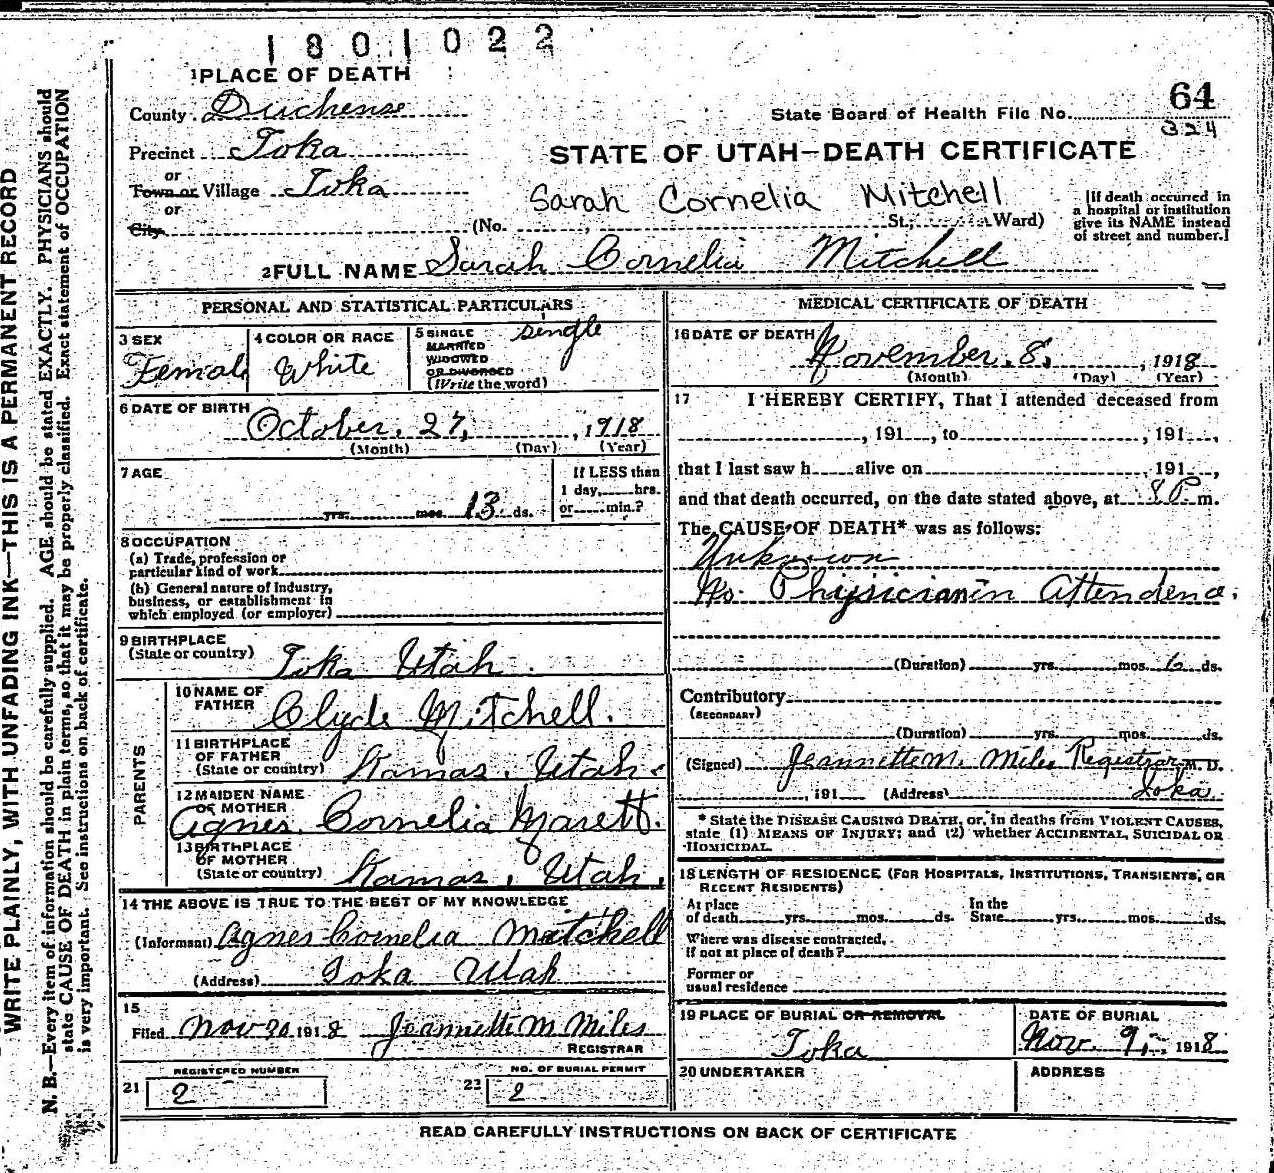 1801022
1 PLACE OF DEATH
County Duchense
64
State Board of Health File No.
324
Precinct Ioka
STATE OF UTAH—DEATH CERTIFICATE
or
Town or Village Ioka
or
City
Sarah Cornelia Mitchell
(No. , St.; Ward)
[If death occurred in
a hospital or institution
give its NAME instead
of street and number.]
2 FULL NAME Sarah Cornelia Mitchell
PERSONAL AND STATISTICAL PARTICULARS
3 SEX
Female
4 COLOR OR RACE
White
5 SINGLE
MARRIED
WIDOWED
OR DIVORCED
(Write the word)
single
6 DATE OF BIRTH
October, 27, , 1918
(Month) (Day) (Year)
7 AGE
yrs. mos. 13 ds.
If LESS than
1 day, hrs.
or min.?
8 OCCUPATION
(a) Trade, profession or
particular kind of work
(b) General nature of industry,
business, or establishment in
which employed (or employer)
9 BIRTHPLACE
(State or country)
Ioka Utah.
PARENTS
10 NAME OF
FATHER
Clyde Mitchell.
11 BIRTHPLACE
OF FATHER
(State or country)
Kamas, Utah.
12 MAIDEN NAME
OF MOTHER
Agnes Cornelia Marett.
13 BIRTHPLACE
OF MOTHER
(State or country)
Kamas, Utah.
14 THE ABOVE IS TRUE TO THE BEST OF MY KNOWLEDGE
(Informant) Agnes Cornelia Mitchell
(Address) Ioka Utah
15
Filed Nov 30 1918 Jeannette M Miles
REGISTRAR
REGISTERED NUMBER
21 2
NO. OF BURIAL PERMIT
23 2
MEDICAL CERTIFICATE OF DEATH
16 DATE OF DEATH
November, 8, , 1918
(Month) (Day) (Year)
17 I HEREBY CERTIFY, That I attended deceased from
, 191 , to , 191 ,
that I last saw h alive on , 191 ,
and that death occurred, on the date stated above, at 8 P. m.
The CAUSE OF DEATH* was as follows:
Unknown
No Physician in Attendence.
(Duration) yrs. mos. 6 ds.
Contributory
(SECONDARY)
(Duration) yrs. mos. ds.
(Signed) Jeannette M. Miles Registrar M. D.
, 191 (Address) Ioka.
* State the DISEASE CAUSING DEATH, or, in deaths from VIOLENT CAUSES,
state (1) MEANS OF INJURY; and (2) whether ACCIDENTAL, SUICIDAL OR
HOMICIDAL.
18 LENGTH OF RESIDENCE (FOR HOSPITALS, INSTITUTIONS, TRANSIENTS, OR
RECENT RESIDENTS)
At place
of death yrs. mos. ds.
In the
State yrs. mos. ds.
Where was disease contracted,
if not at place of death?
Former or
usual residence
19 PLACE OF BURIAL OR REMOVAL
Ioka
DATE OF BURIAL
Nov. 9, 1918
20 UNDERTAKER
ADDRESS
READ CAREFULLY INSTRUCTIONS ON BACK OF CERTIFICATE
WRITE PLAINLY, WITH UNFADING INK—THIS IS A PERMANENT RECORD
N. B.—Every item of information should be carefully supplied. AGE should be stated EXACTLY. PHYSICIANS should
state CAUSE OF DEATH in plain terms, so that it may be properly classified. Exact statement of OCCUPATION
is very important. See instructions on back of certificate.